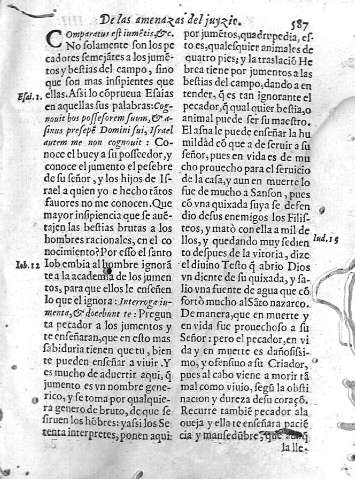 De las amenazas del juyzio. 587
Comparatus est iumẽtis,&c.
No solamente son los pe
cadores semejãtes a los jumẽ
tos y bestias del campo, sino
que son mas insipientes que
Esai.1.
ellas. Assi lo cõprueua Esaias
en aquellas sus palabras: Cog-
nouit bos possessorem suum, & a-
sinus præsepe Domini sui, Israel
autem me non cognouit: Co-
noce el buey a su possedor, y
conoce el jumento el pesebre
de su señor, y los hijos de Is-
rael a quien yo e hecho tãtos
fauores no me conocen. Que
mayor insipiencia que se auẽ-
tajen las bestias brutas a los
hombres racionales, en el co
nocimiento? Por esso el santo
Iob.12
Iob embia al hombre ignorã
te a la academia de los jumen
tos, para que ellos le enseñen
lo que el ignora: Interroga iu-
menta, & docebunt te: Pregun
ta pecador a los jumentos y
te enseñaran, que en esto mas
sabiduria tienen que tu, bien
te pueden enseñar a viuir. Y
es mucho de aduertir aqui, q̃
jumento es vn nombre gene-
rico, y se toma por qualquie-
ra genero de bruto, de que se
siruen los hõbres: y assi los Se
tenta interpretes, ponen aqui:
por jumẽtos, quadrupedia, es-
to es, qualesquier animales de
quatro pies; y la traslació He
brea tiene por jumentos a las
bestias del campo, dando a en
tender, q̃ es tan ignorante el
pecador, q̃ qual quier bestia, o
animal puede ser su maestro.
El asna le puede enseñar la hu
mildãd cõ que a de seruir a su
señor, pues en vida es de mu
cho prouecho para el seruicio
de la casa, y aun en muerte lo
fue de mucho a Sanson, pues
cõ vna quixada suya se defen
dio de sus enemigos los Filis-
teos, y matò con ella a mil de
Iud.15
llos, y quedando muy sedien
to despues de la vitoria, dize
el diuino Testo q̃ abrio Dios
vn diente de su quixada, y sa-
lio vna fuente de agua que cõ
fortò mucho al Sãto nazareo.
De manera, que en muerte y
en vida fue prouechoso a su
Señor: pero el pecador, en vi
da y en muerte es dañosissi-
mo, y ofensiuo a su Criador,
pues al cabo viene a morir tã
mal como viuio, segũ la obsti
nacion y dureza de su coraçõ.
Recurre tambiẽ pecador a la
oueja y ella te enseñara paciẽ
cia y mansedũbre, que aunq̃
la lle-